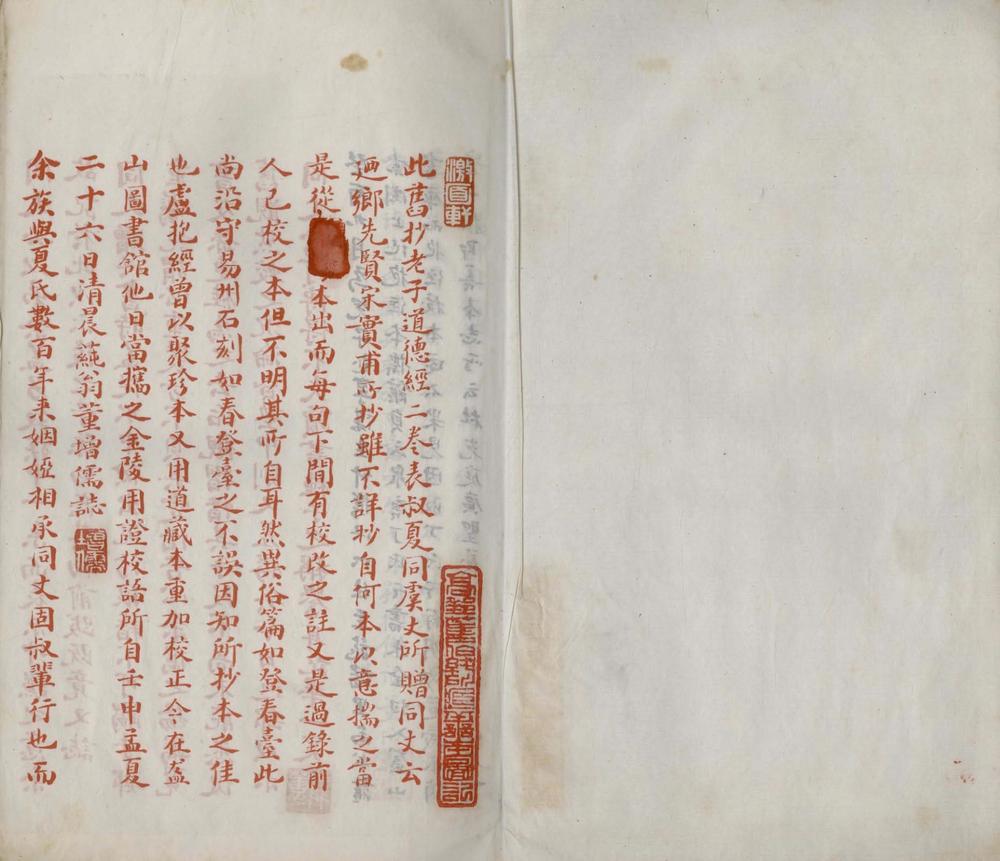 澂圓軒
此舊抄老子道德經二卷表叔夏同虞丈所贈同丈云
廼鄉先賢宋實甫所抄雖不詳抄自何本以意揣之當
是從 本出而每句下間有校改之註又是過錄前
人已校之本但不明其所自耳然異俗篇如登春臺此
尚沿守易州石刻如春登臺之不誤因知所抄本之佳
也盧抱經曾以聚珍本又用道藏本重加校正今在盋
山圖書館他日當攜之金陵用證校語所自壬申孟夏
二十六日清晨蒓翁董增儒誌
增儒
余族與夏氏數百年来姻婭相承同丈固叔輩行也而